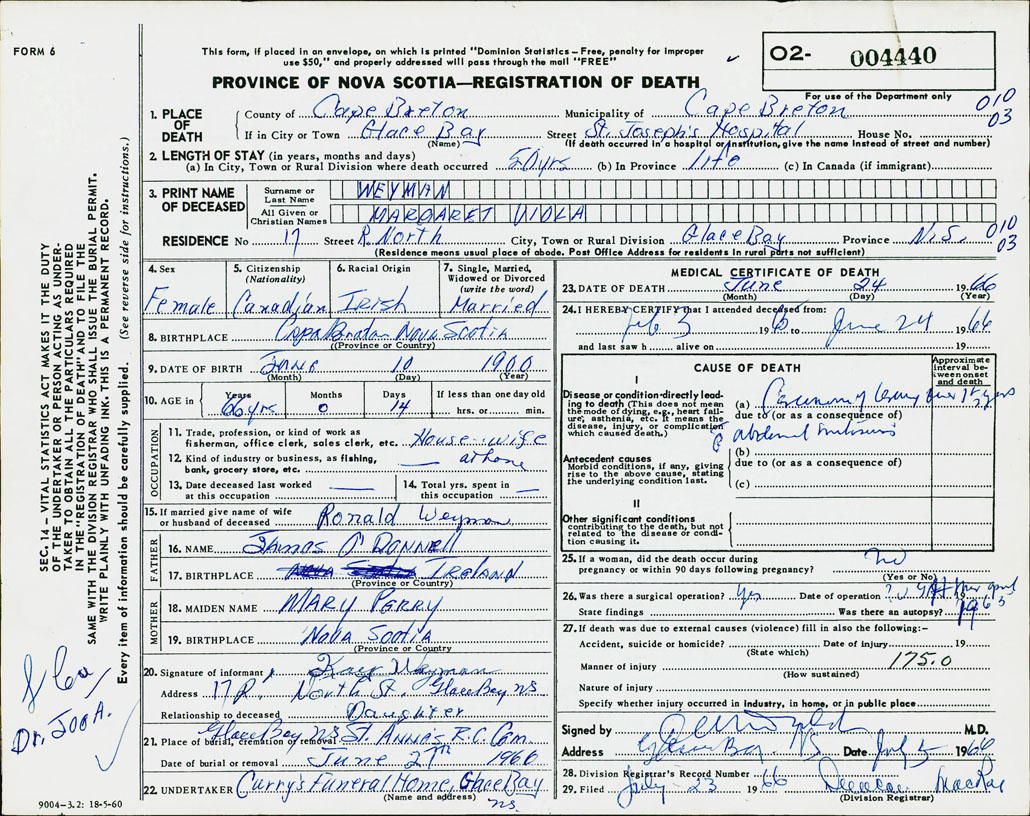 FORM 6
This form, if placed in an envelope, on which is printed "Dominion Statistics – Free, penalty for improper
use $50," and properly addressed will pass through the mail "FREE"
O2- 004440
PROVINCE OF NOVA SCOTIA—REGISTRATION OF DEATH
For use of the Department only
1. PLACE OF DEATH
County of Cape Breton Municipality of Cape Breton 010
If in City or Town Glace Bay Street St. Joseph's Hospital House No. 03
(Name) (If death occurred in a hospital or institution, give the name instead of street and number)
2. LENGTH OF STAY (in years, months and days)
(a) In City, Town or Rural Division where death occurred 50 yrs (b) In Province life (c) In Canada (if immigrant)
3. PRINT NAME OF DECEASED
Surname or Last Name WEYMAN
All Given or Christian Names MARGARET VIOLA
RESIDENCE No 17 Street R. North City, Town or Rural Division Glace Bay Province N.S. 010
(Residence means usual place of abode. Post Office Address for residents in rural parts not sufficient) 03
4. Sex Female
5. Citizenship (Nationality) Canadian
6. Racial Origin Irish
7. Single, Married, Widowed or Divorced (write the word) Married
8. BIRTHPLACE Cape Breton Nova Scotia
(Province or Country)
9. DATE OF BIRTH June 10 1900
(Month) (Day) (Year)
10. AGE in Years Months Days If less than one day old
66 yrs 0 14 hrs. or min.
OCCUPATION
11. Trade, profession, or kind of work as
fisherman, office clerk, sales clerk, etc. House-wife
12. Kind of industry or business, as fishing,
bank, grocery store, etc. at home
13. Date deceased last worked
at this occupation
14. Total yrs. spent in
this occupation
15. If married give name of wife
or husband of deceased Ronald Weyman
FATHER
16. NAME James O'Donnell
17. BIRTHPLACE Nova Scotia IRELAND
(Province or Country)
MOTHER
18. MAIDEN NAME MARY PERRY
19. BIRTHPLACE Nova Scotia
(Province or Country
20. Signature of informant Weyman
Address 17 R. North St. Glace Bay NS
Relationship to deceased Daughter
21. Place of burial, cremation or removal Glace Bay NS St. Anne's R.C. Cem.
Date of burial or removal June 27th 1966
22. UNDERTAKER Curry's Funeral Home, Glace Bay
(Name and address) NS.
MEDICAL CERTIFICATE OF DEATH
23. DATE OF DEATH June 24 1966
(Month) (Day) (Year)
24. I HEREBY CERTIFY that I attended deceased from:
Feb 3 19 to June 24 1966
and last saw h alive on 19
CAUSE OF DEATH
Approximate interval between onset and death
I
Disease or condition directly leading to death (This does not mean the mode of dying, e.g., heart failure, asthenia, etc. It means the disease, injury, or complication which caused death.)
(a)
due to (or as a consequence of)
abdominal
Antecedent causes
Morbid conditions, if any, giving rise to the above cause, stating the underlying condition last.
(b)
due to (or as a consequence of)
(c)
II
Other significant conditions
contributing to the death, but not related to the disease or condition causing it.
25. If a woman, did the death occur during
pregnancy or within 90 days following pregnancy? no
(Yes or No)
26. Was there a surgical operation? Yes Date of operation 19
State findings Was there an autopsy?
27. If death was due to external causes (violence) fill in also the following:–
Accident, suicide or homicide? Date of injury 19
(State which)
Manner of injury 175.0
(How sustained)
Nature of injury
Specify whether injury occurred in Industry, in home, or in public place
Signed by M.D.
Address Glace Bay NS Date July 5 1966
28. Division Registrar's Record Number 66
29. Filed July 23 19 Duncan MacRae
(Division Registrar)
SEC. 14 – VITAL STATISTICS ACT MAKES IT THE DUTY
OF THE UNDERTAKER OR PERSON ACTING AS UNDERTAKER TO OBTAIN ALL THE PARTICULARS REQUIRED
IN THE "REGISTRATION OF DEATH" AND TO FILE THE
SAME WITH THE DIVISION REGISTRAR WHO SHALL ISSUE THE BURIAL PERMIT.
WRITE PLAINLY WITH UNFADING INK. THIS IS A PERMANENT RECORD.
Every item of information should be carefully supplied. (See reverse side for instructions.)
Dr. Joe A.
9004–3.2: 18-5-60